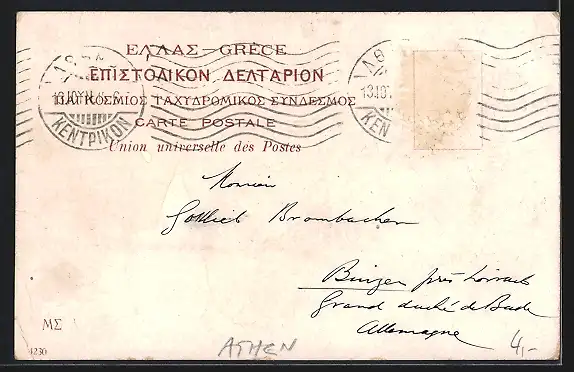 ΕΛΛΑΣ — GRÈCE
ΕΠΙΣΤΟΛΙΚΟΝ ΔΕΛΤΑΡΙΟΝ
ΠΑΓΚΟΣΜΙΟΣ ΤΑΧΥΔΡΟΜΙΚΟΣ ΣΥΝΔΕΣΜΟΣ
CARTE POSTALE
Union universelle des Postes
ΚΕΝΤΡΙΚΟΝ
ΚΕΝ
Monsieur
Gottlieb Brombacher
Binzen près Lörrach
Grand duché de Bade
Allemagne
ΜΣ
1230
ATHEN
4,-